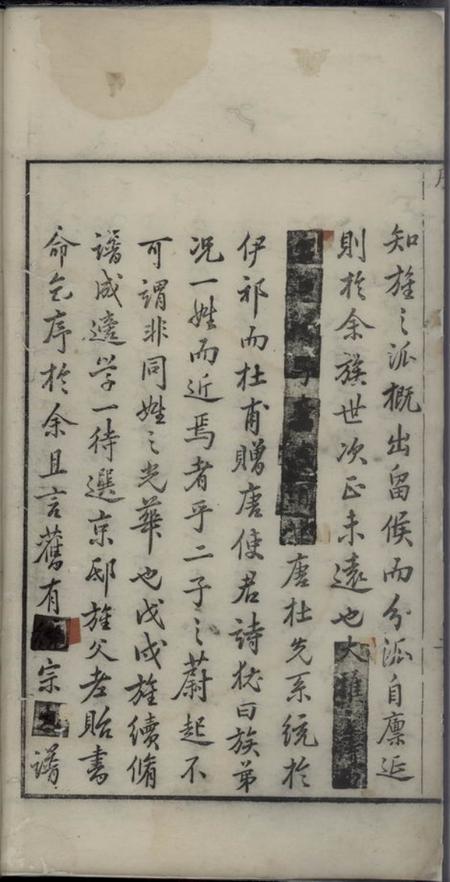 知旌之派概出留候而分派自廪延
則於余族世次正未遠也大
唐杜先系統於
伊祁而杜甫贈唐使君詩猶曰族弟
况一姓而近焉者乎二子之蔚起不
可謂非同姓之光華也戊戌旌續脩
譜成適学一待選京邸旌父老貽書
命乞序於余且言舊有宗譜